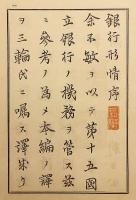 銀行形情序
余不敏ヲ以テ第十五國
立銀行ノ機務ヲ管ス玆
ニ參考ノ爲メ本編ヲ譯
ヲ三輪氏ニ囑ス譯成リ